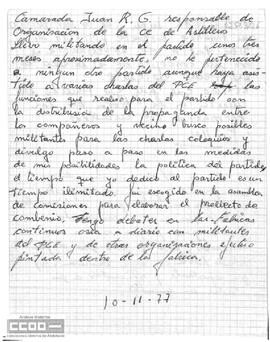 Camarada Juan R. G. responsable de
Organizacion de la CC de Artilleros
Llevo militando en el partido unos tres
meses aproximadamente, no he pertenecido
a ningun otro partido aunque haya asis-
tido a varias charlas del PCE las
funciones que realizo para el partido son
la distribucion de la propaganda entre
los compañeros y vecinos busco posibles
militantes para las charlas coloquios y
divulgo paso a paso en las medidas
de mis posibilidades la politica del partido,
el tiempo que yo dedico al partido es un
tiempo ilimitado, fui escogido en la asamblea
de comisiones para elaborar el proyecto de
combenio, tengo debates en las fabricas
continuos osea a diario con militantes
del PCE y de otras organizaciones
pintada dentro de la fabrica.
10-11-77
CCOO